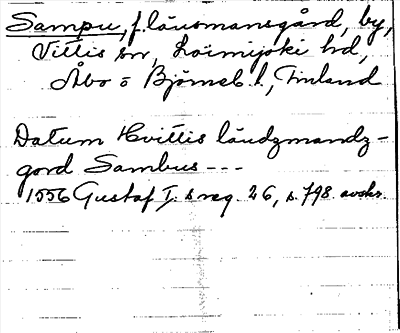 Sampu, f. länsmansgård, by,
Vittis sn, Loimijoki hd,
Åbo o Björneb. l., Finland
Datum Hvittisländzmandz-
gord Sambus ---
1556 Gustaf I:s reg. 26, s. 798 avskr.